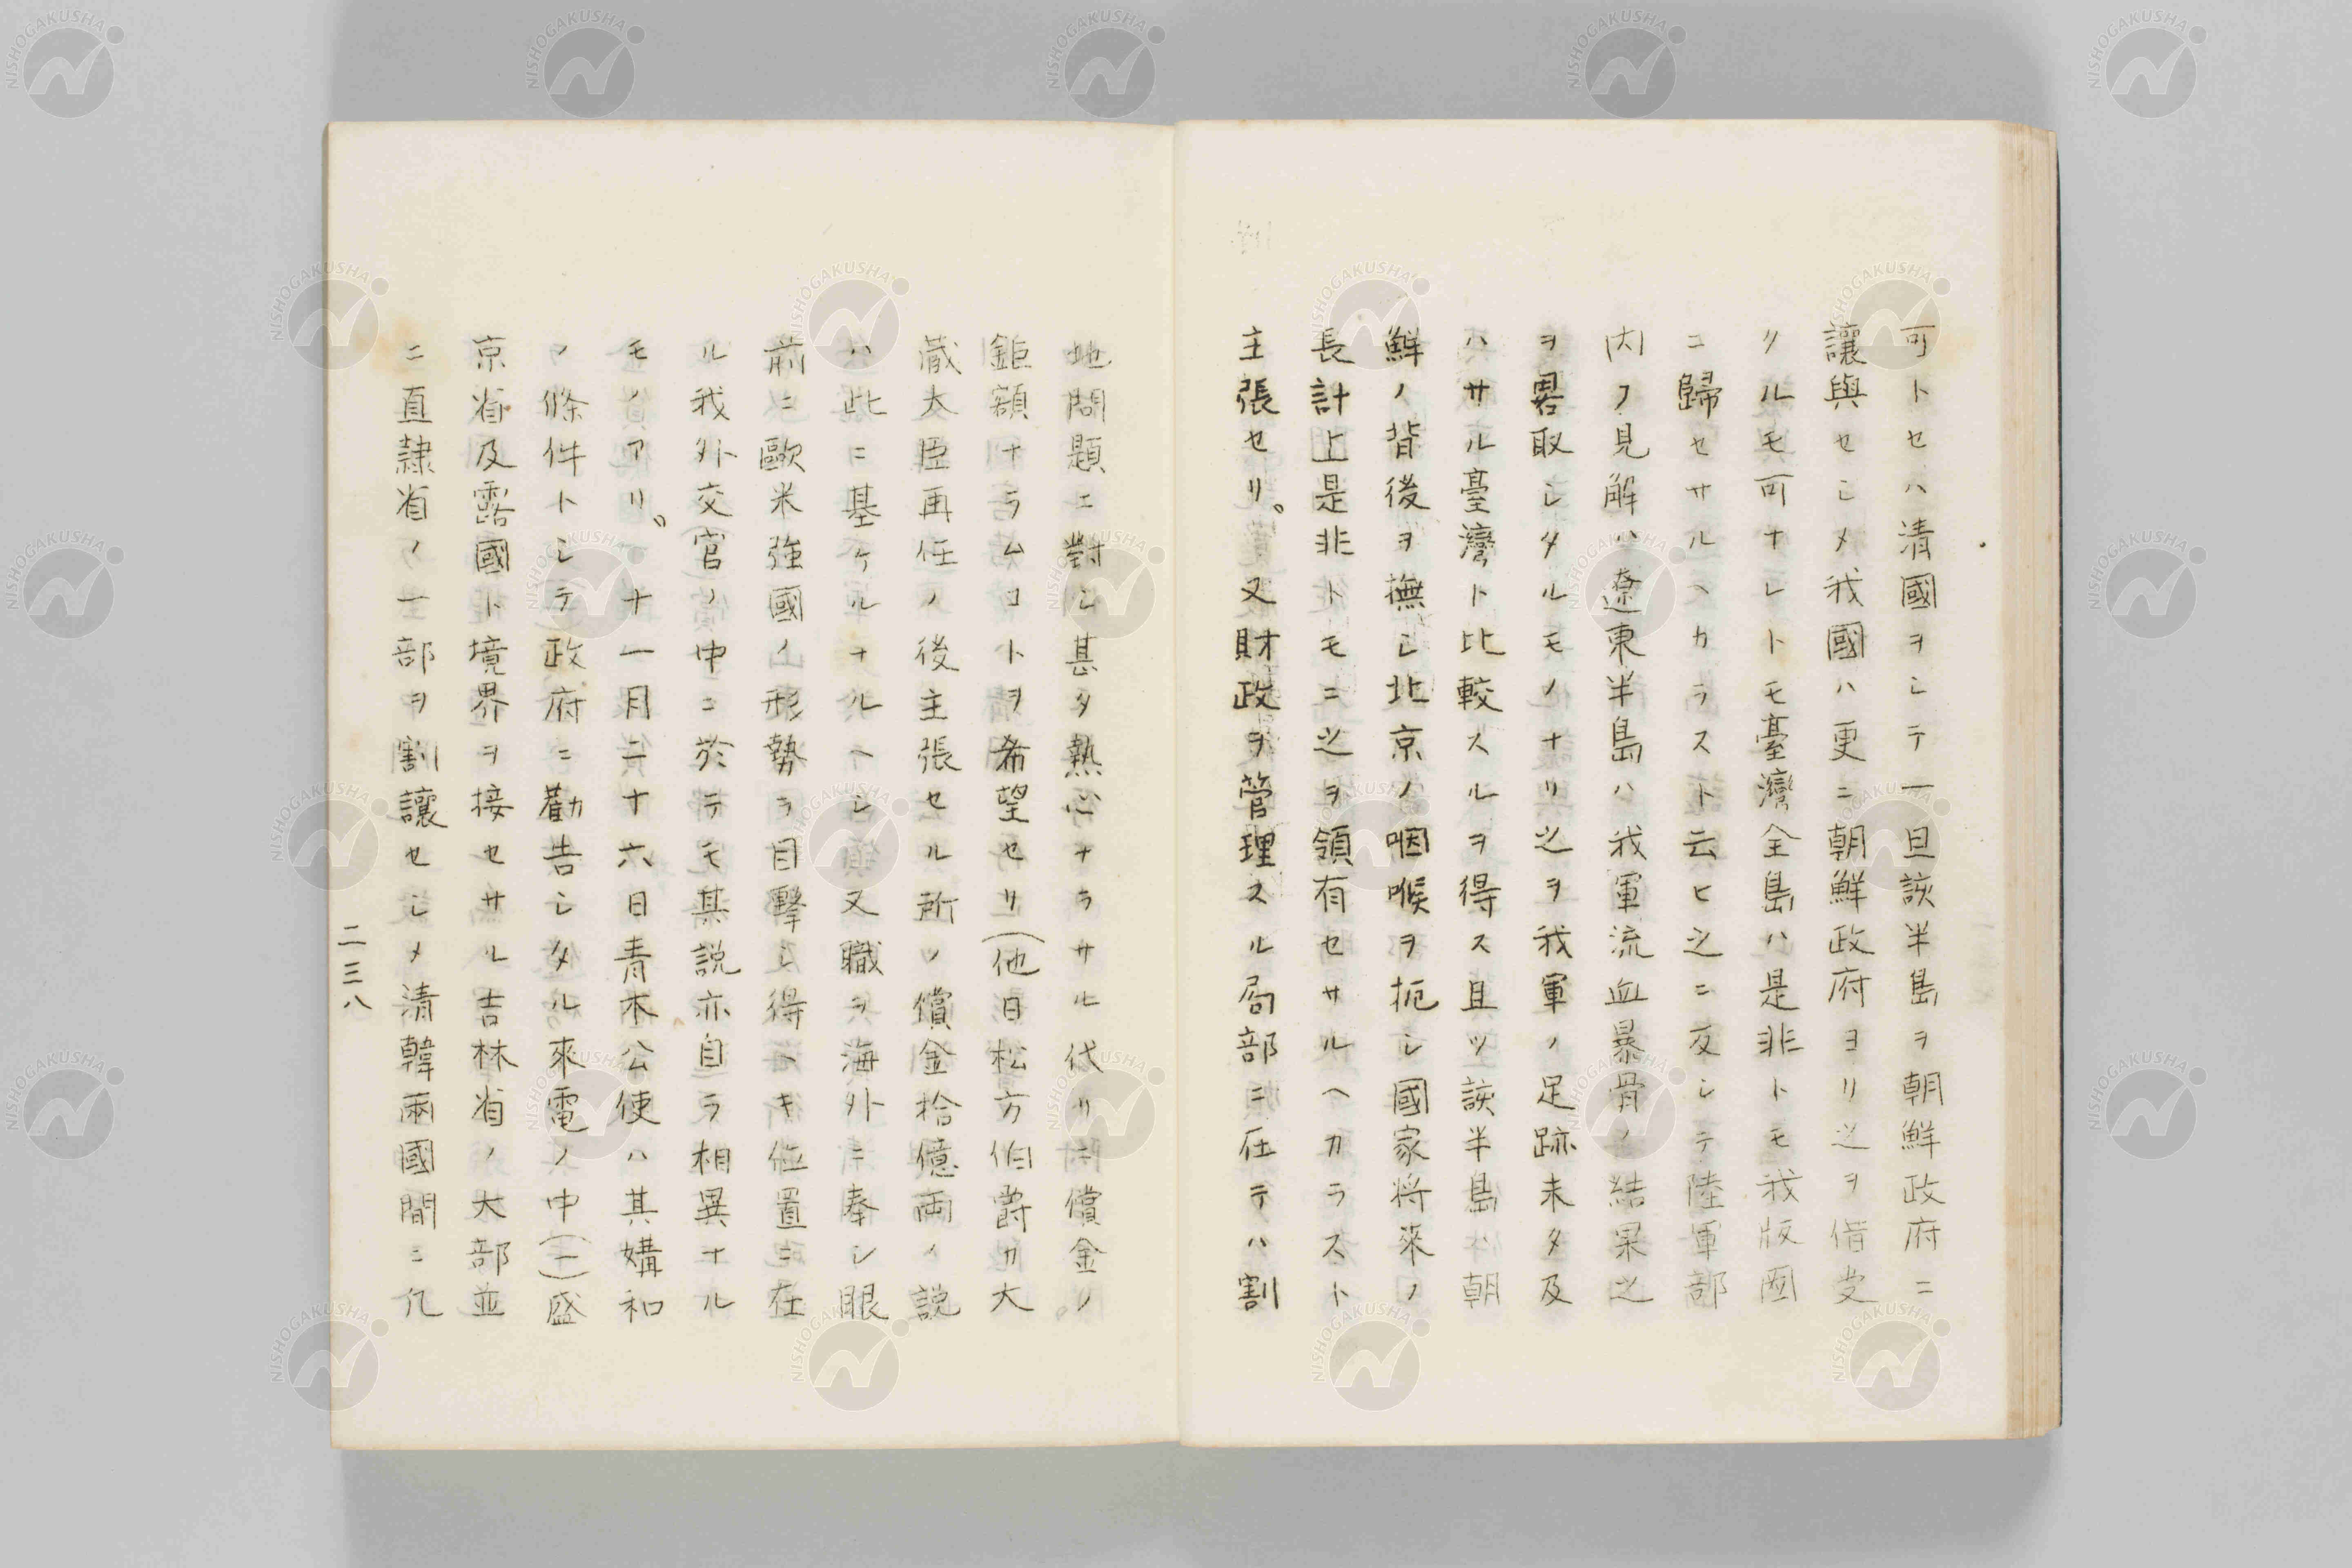 可トセハ清國ヲシテ一旦該半島ヲ朝鮮政府ニ
讓與セシメ我國ハ更ニ朝鮮政府ヨリ之ヲ借受
クルモ可ナレトモ臺灣全島ハ是非トモ我版圖
ニ歸セサルヘカラスト云ヒ之ニ反シテ陸軍部
内ノ見解ハ遼東半島ハ我軍流血暴骨ノ結果之
ヲ畧取シタルモノナリ之ヲ我軍ノ足跡未タ及
ハサル臺灣ト比較スルヲ得ス且ツ該半島ハ朝
鮮ノ背後ヲ撫シ北京ノ咽喉ヲ扼シ國家将來ノ
長計上是非トモニ之ヲ領有セサルヘカラスト
主張セリ。又財政ヲ管理スル局部ニ在テハ割
地問題ニ對シ甚タ熱心ナラサル代リニ償金ノ
鉅額ナラムコトヲ希望セリ(他日松方伯爵カ大
蔵大臣再任ノ後主張セル所ノ償金拾億両ノ説
ハ此ニ基ケルナルヘシ)又職ヲ海外ニ奉シ眼
前ニ歐米強國ノ形勢ヲ目擊シ得ヘキ位置ニ在
ル我外交官ノ中ニ於テモ其説亦自ラ相異ナル
モノアリ。十一月二十六日青木公使ハ其媾和
ノ條件トシテ政府ニ勸告シタル來電ノ中(一)盛
京省及露國ト境界ヲ接セサル吉林省ノ大部並
ニ直隷省ノ一部ヲ割讓セシメ清韓兩國間ニ凡
二三八
NISHOGAKUSHA